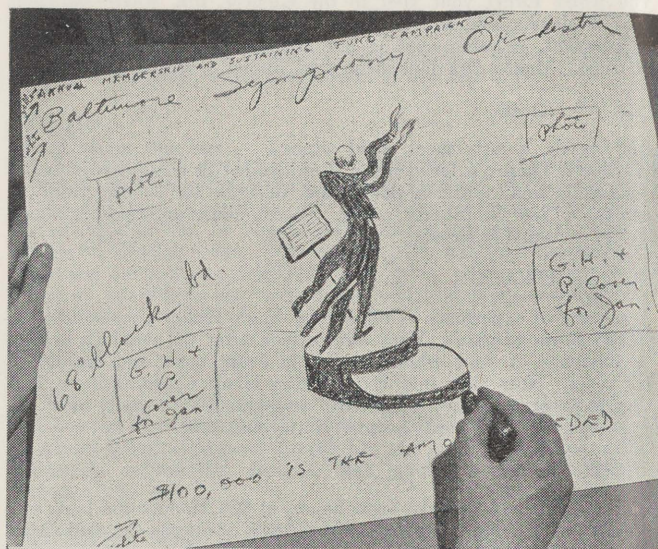 ANNUAL MEMBERSHIP AND SUSTAINING FUND CAMPAIGN OF
Baltimore Symphony Orchestra
photo
photo
68" black bd.
G. H. +
P.
Cover
for Jan.
G. H. +
P. Cover
for Jan.
$100,000 IS THE AMO EDED